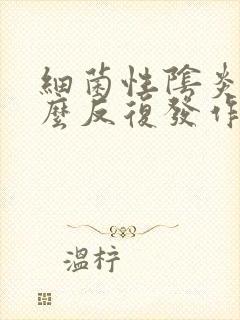 細菌性陰炎
麼反復發作
溫柠